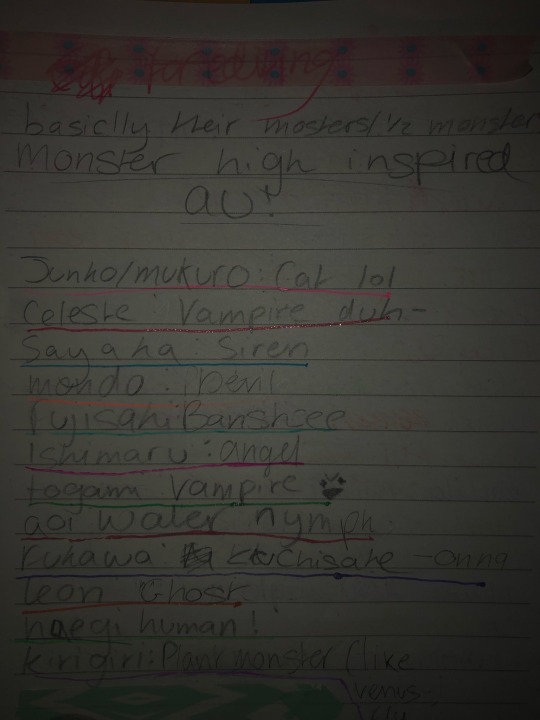 basiclly their mosters/½ monster
Monster high inspired
au!
Junko/mukuro: Cat lol
Celeste: Vampire duh-
Sayaka: Siren
mondo: Devil
Fujisaki: Banshee
Ishimaru: angel
togami vampire
aoi water nymph
Fukawa: Kuchisake-onna
leon Ghost
naegi human!
Kirigiri: Plant monster (like
venus
fly